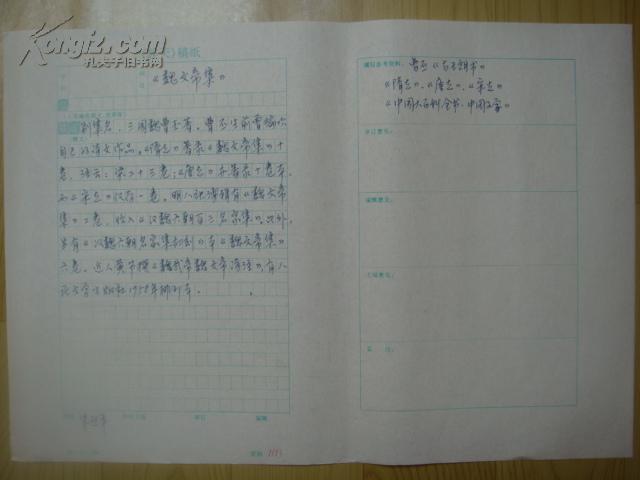 Kongfz.com
孔夫子旧书网
稿纸
《魏文帝集》
别集名。三国魏曹丕著。曹丕生前曾编次
自己的诗文作品。《隋志》著录《魏文帝集》十
卷，注云：梁二十三卷；《唐志》亦著录十卷本，
而《宋志》仅存一卷。明人张溥辑有《魏文帝
集》二卷，收入《汉魏六朝百三名家集》。此外，
另有《汉魏六朝名家集初刻》本《魏文帝集》
六卷。近人黄节撰《魏武帝魏文帝诗注》，有人
民文学出版社1958年排印本。
编写参考资料：曹丕《与王朗书》
《隋志》、《唐志》、《宋志》
《中国大百科全书·中国文学》
审订意见：
编辑意见：
主编意见：
备注：